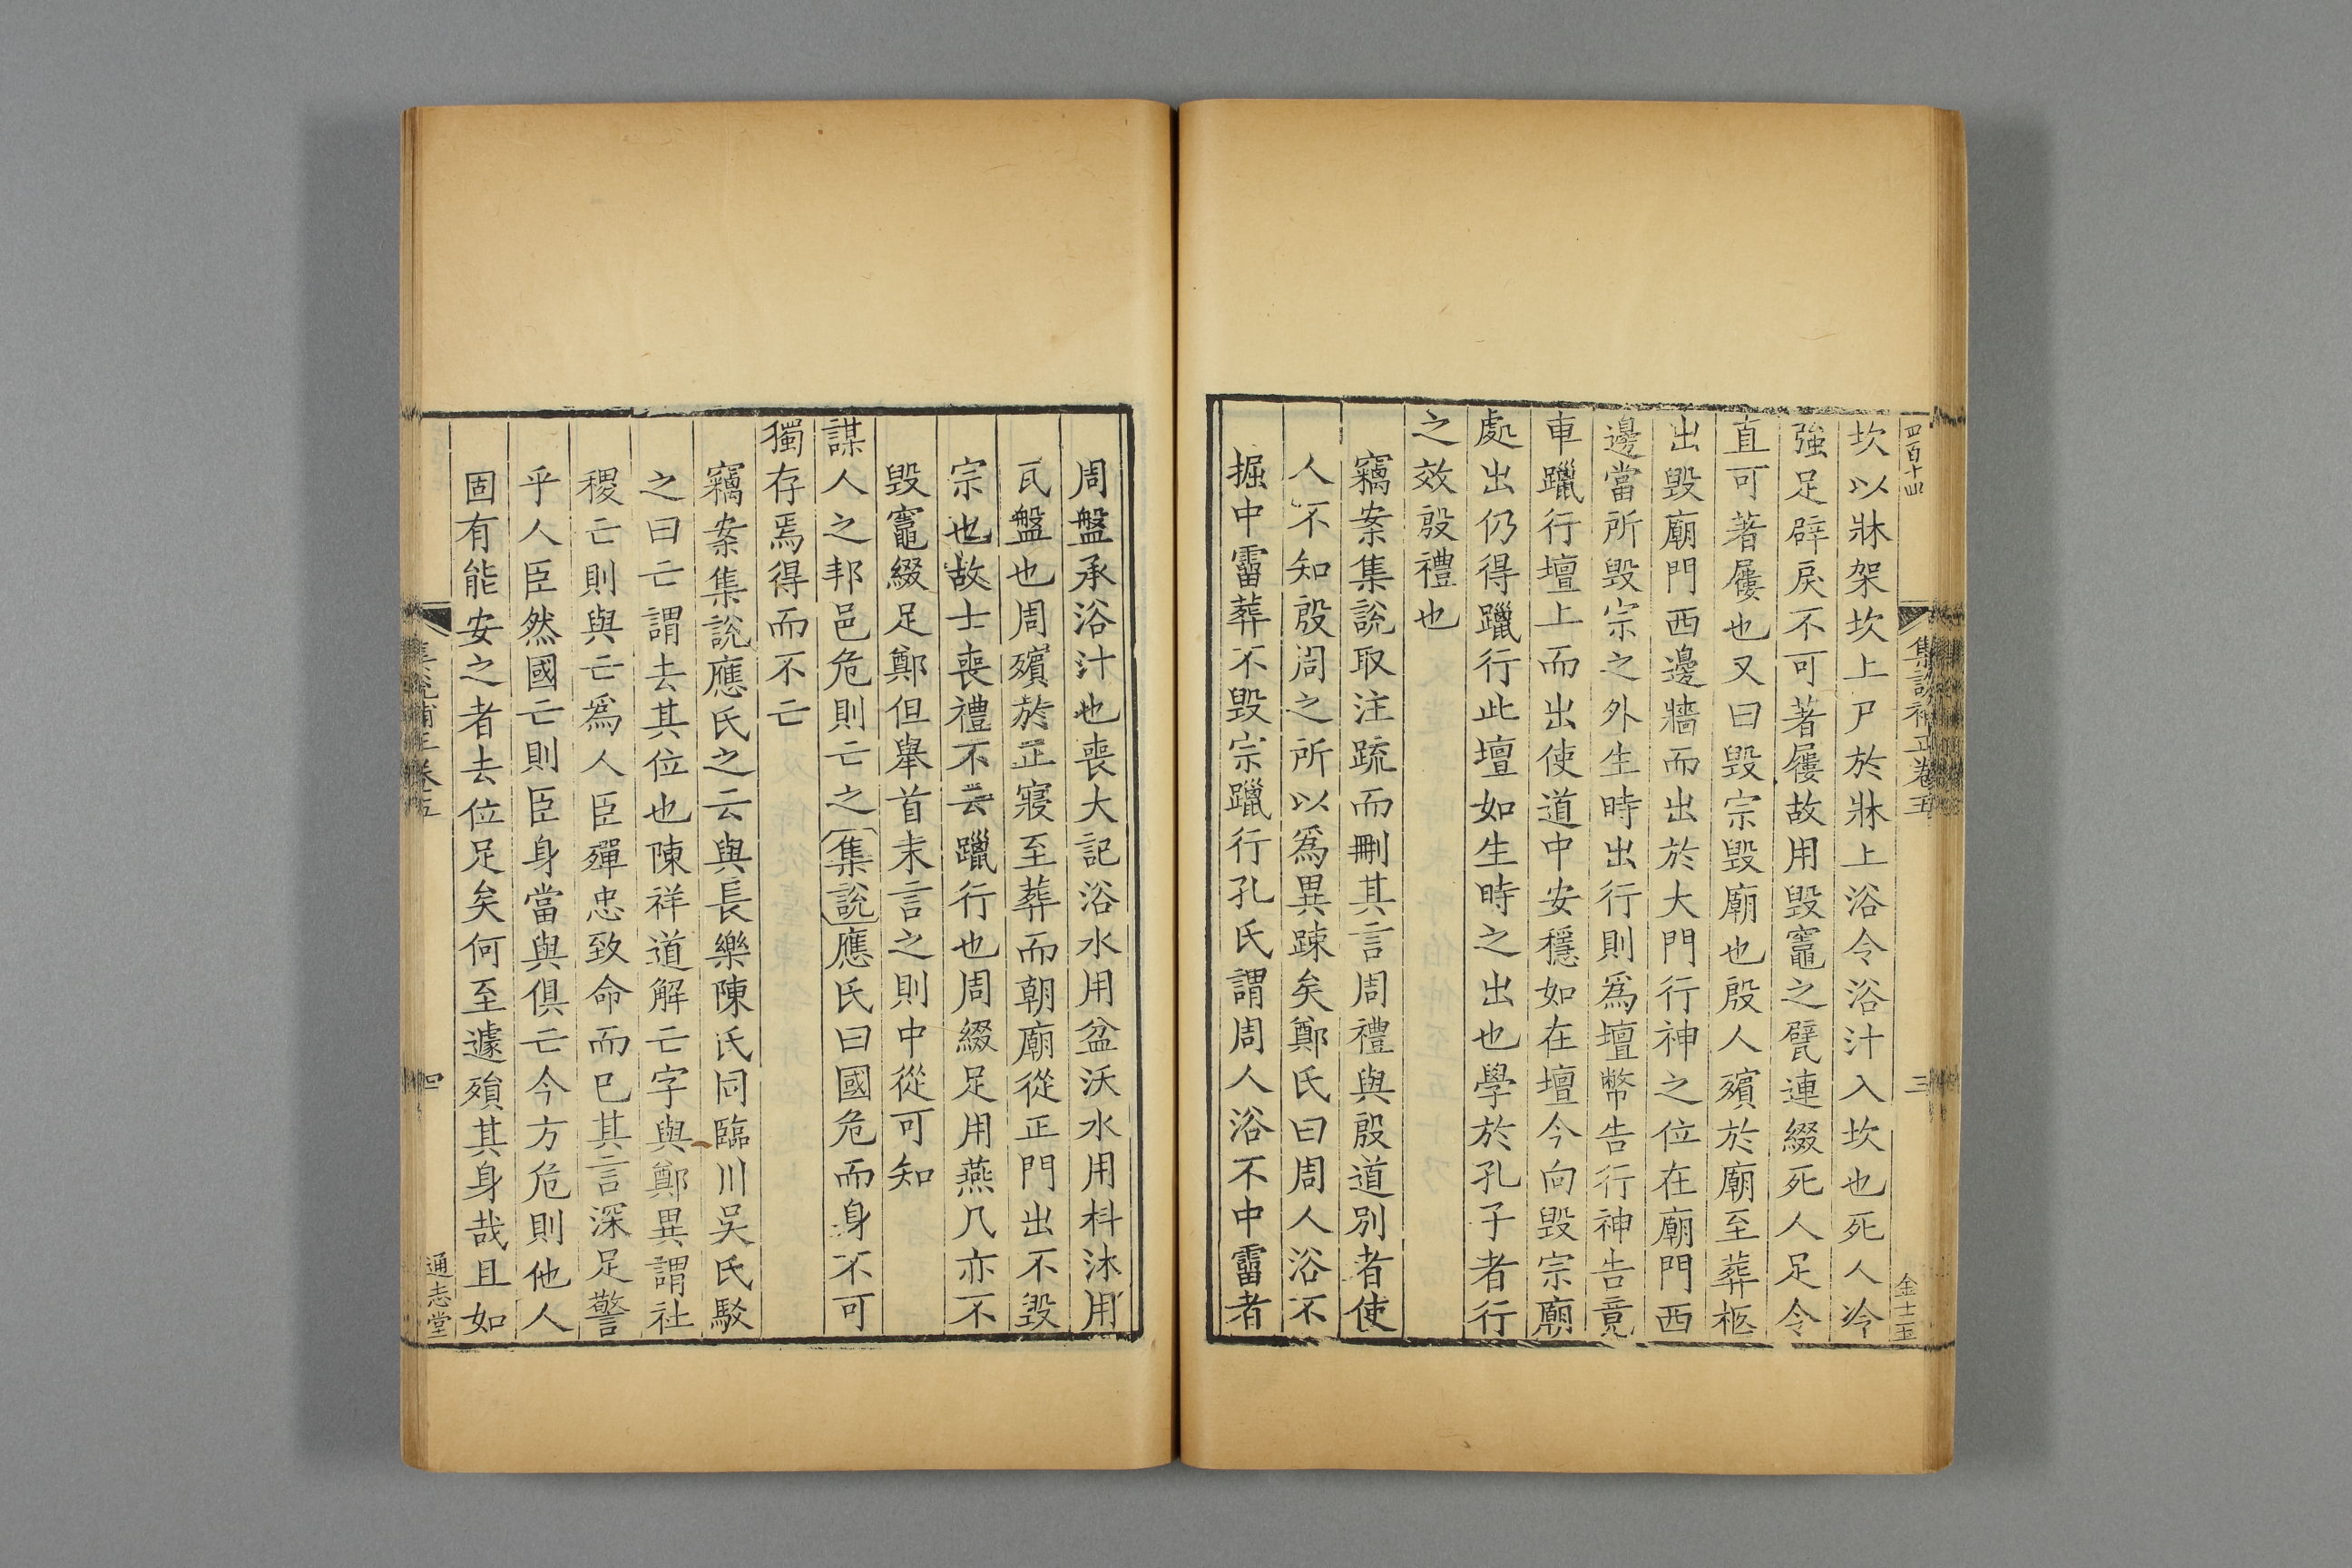 四百十四
集說補正卷五
三
金士玉
坎以牀架坎上尸於牀上浴令浴汁入坎也死人冷
強足辟戾不可著屨故用毀竈之甓連綴死人足令
直可著屨也又曰毀宗毀廟也殷人殯於廟至葬柩
出毀廟門西邊牆而出於大門行神之位在廟門西
邊當所毀宗之外生時出行則爲壇幣告行神告竟
車躐行壇上而出使道中安穩如在壇今向毀宗廟
處出仍得躐行此壇如生時之出也學於孔子者行
之效殷禮也
竊案集說取注疏而刪其言周禮與殷道別者使
人不知殷周之所以爲異踈矣鄭氏曰周人浴不
掘中霤葬不毀宗躐行孔氏謂周人浴不中霤者
周盤承浴汁也喪大記浴水用盆沃水用枓沐用
瓦盤也周殯於正寢至葬而朝廟從正門出不毀
宗也故士喪禮不云躐行也周綴足用燕几亦不
毀竈綴足鄭但舉首未言之則中從可知
謀人之邦邑危則亡之集說應氏曰國危而身不可
獨存焉得而不亡
竊案集說應氏之云與長樂陳氏同臨川吳氏駁
之曰亡謂去其位也陳祥道解亡字與鄭異謂社
稷亡則與亡爲人臣殫忠致命而已其言深足警
乎人臣然國亡則臣身當與俱亡今方危則他人
固有能安之者去位足矣何至遽殞其身哉且如
集說補正卷五
四
通志堂